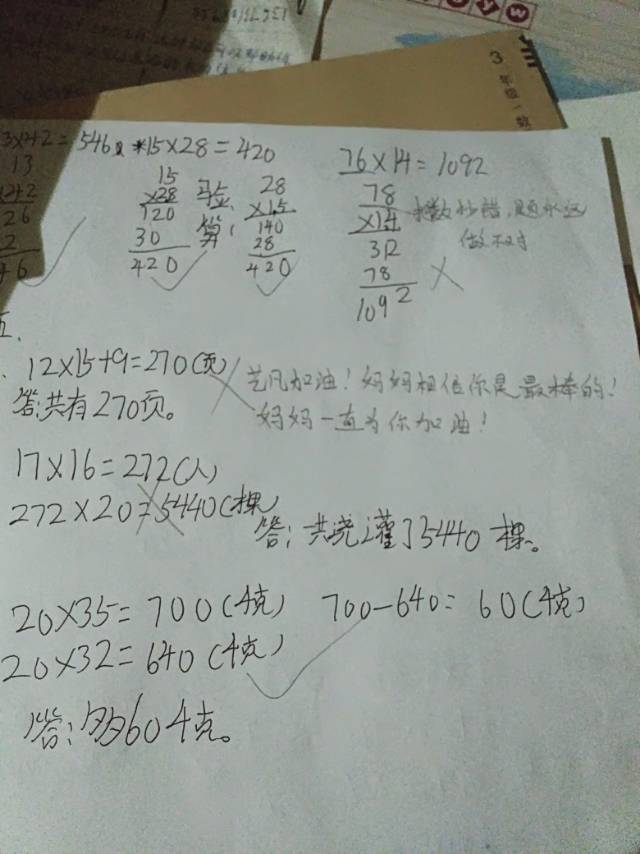 3年级一数
3×42=546 *15×28=420 76×14=1092
13
×42
26
15
×28
120
30
420
验
算:
28
×15
140
28
420
78
×14
312
78
1092
抄错,
做不对
五、
12×15+9=270(页)
答:共有270页。
艺凡加油!妈妈相信你是最棒的!
妈妈一直为你加油!
17×16=272(人)
272×20=5440(棵)
答:共浇灌了5440棵。
20×35=700(千克) 700-640=60(千克)
20×32=640(千克)
答:多60千克。